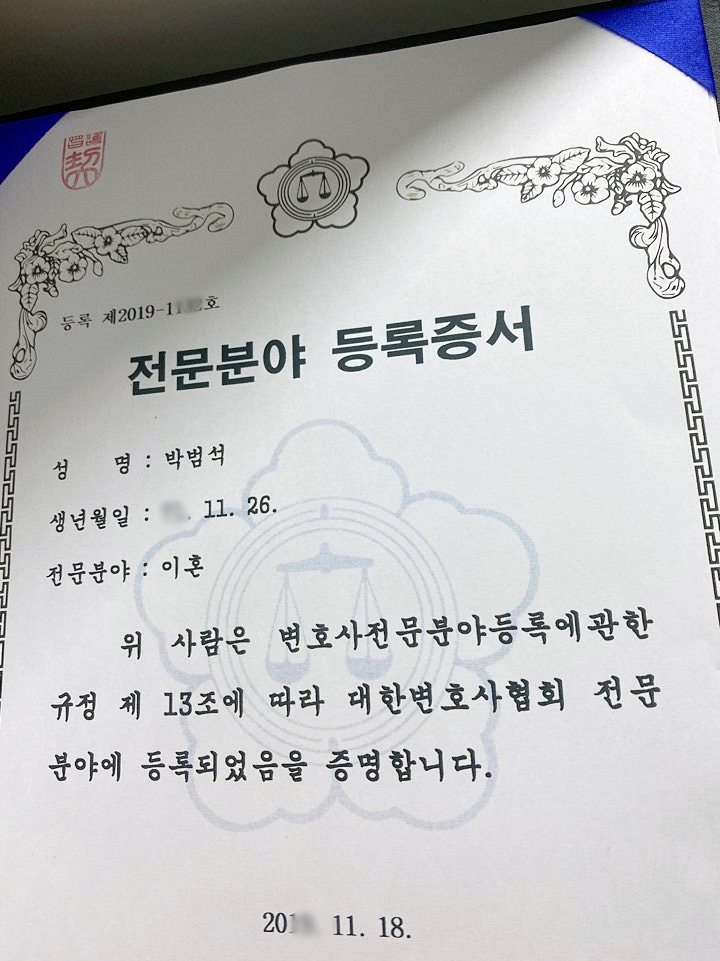 등록 제2019-1 호
전문분야 등록증서
성 명 : 박범석
생년월일 : . 11. 26.
전문분야 : 이혼
위 사람은 변호사전문분야등록에관한
규정 제 13조에 따라 대한변호사협회 전문
분야에 등록되었음을 증명합니다.
20 . 11. 18.